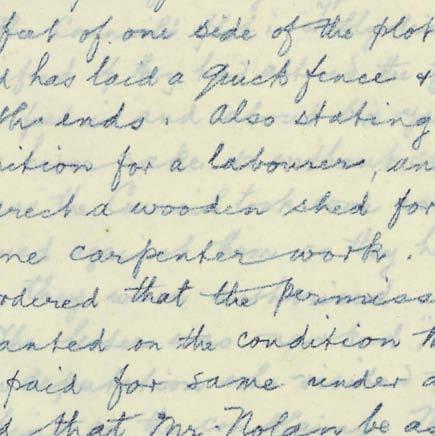 feet of one side of the plot
has laid a Quick fence &
the ends. Also stating
ition for a labourer, an
erect a wooden shed for
ne carpenter work.
rdered that the permiss
anted on the condition th
paid for same under a
d that Mr. Nolan be as